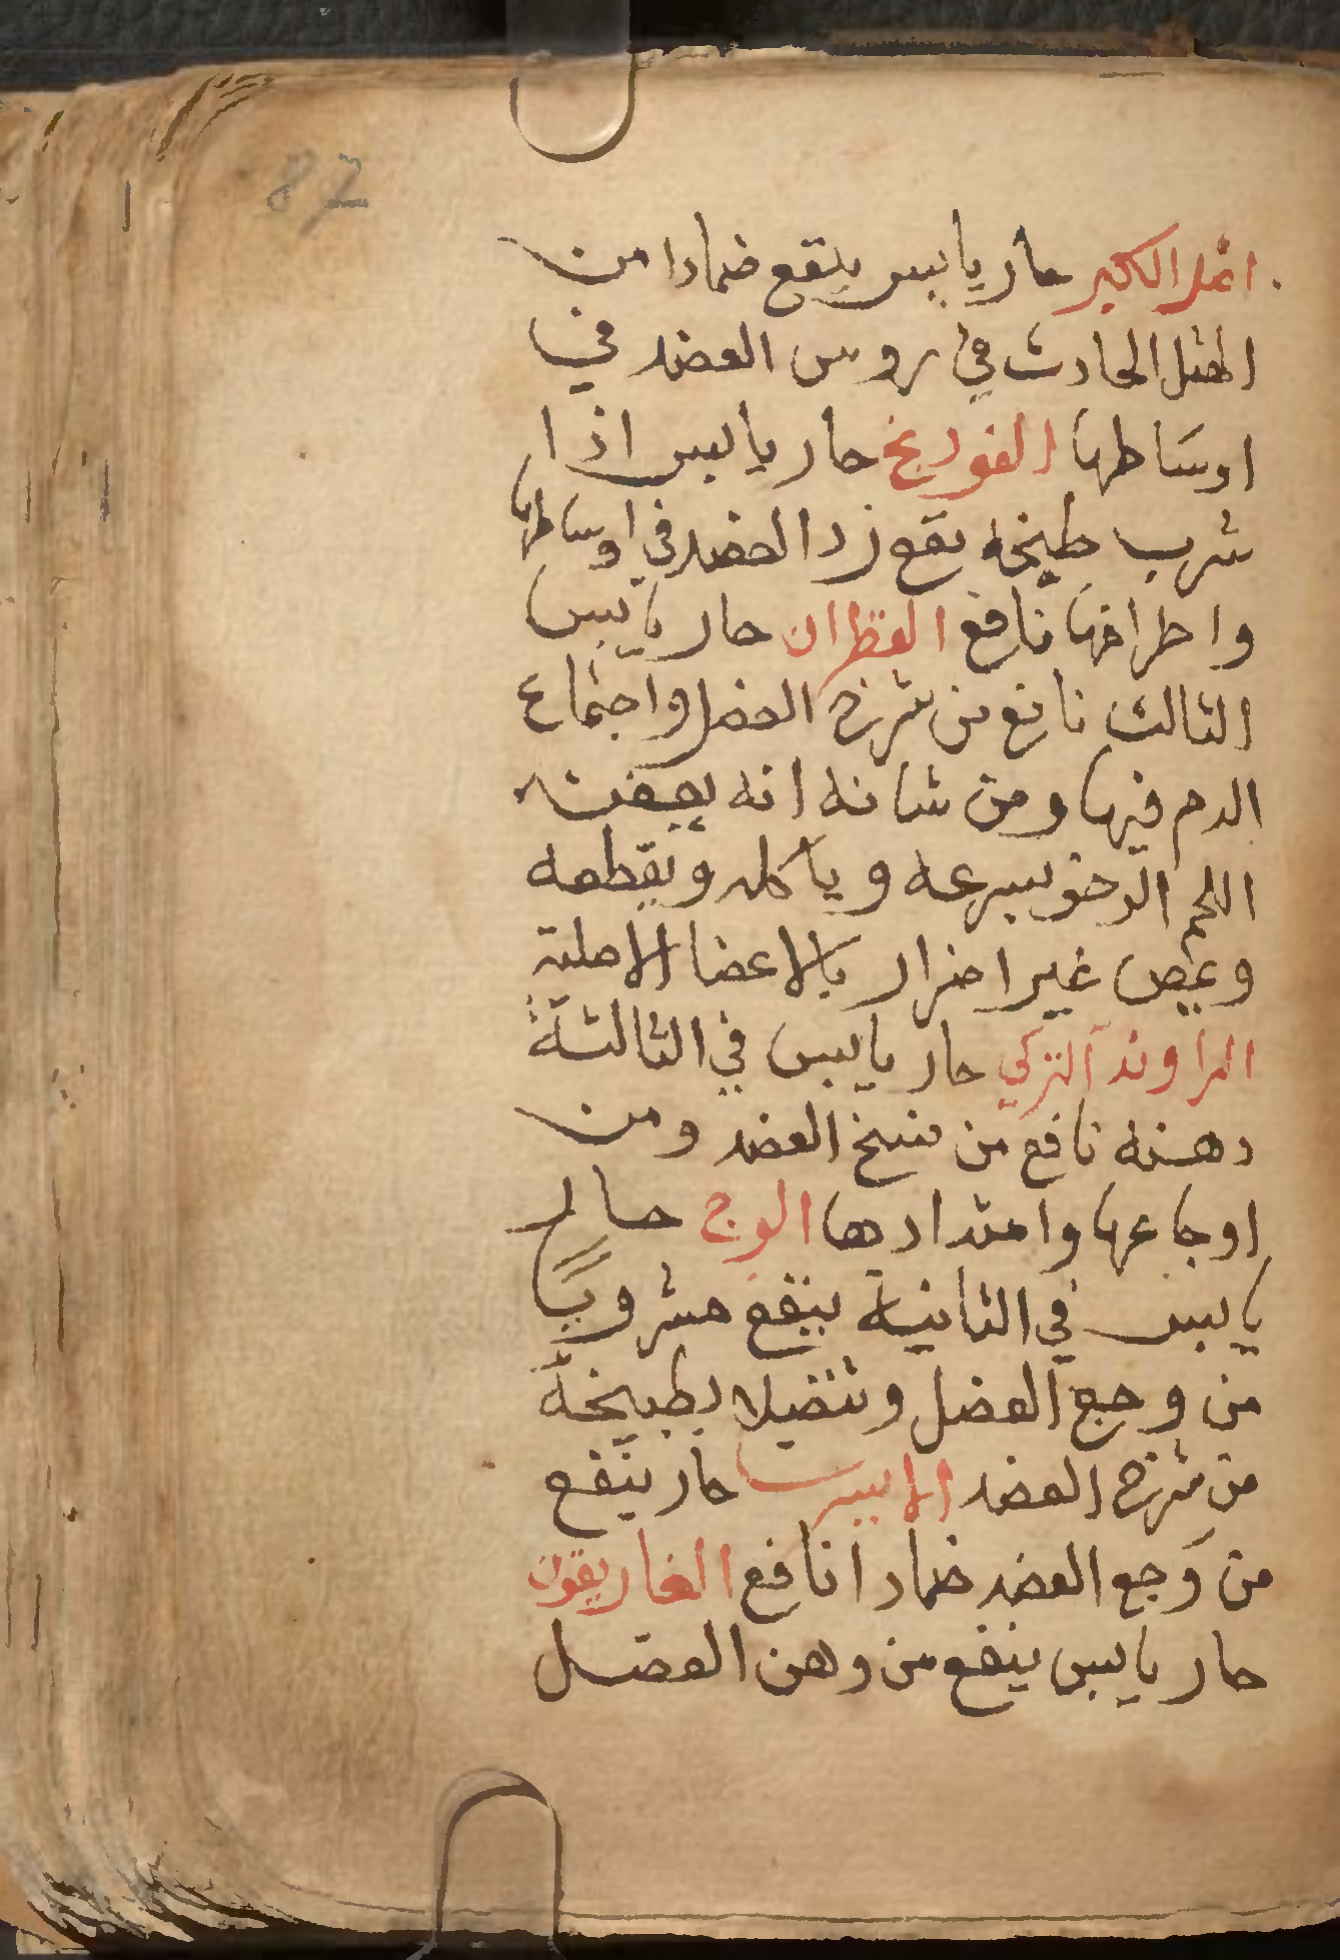 87
اغلا الكبر حار يابس ينفع ضمادا من
الهتل الحادث في روس العضد في
اوساطها الفودنج حار يابس اذا
شرب طبيخه نفع زد العضد في اوساطها
واطرافها نافع القطران حار يابس
الثالث نافع من شرخ العضل واجتماع
الدم فيها ومن شانه انه يعفن
اللحم الرخو بسرعه وياكله ويقطعه
وعص غير اضرار بالاعضا الاصلية
الراوند التركي حار يابس في الثالثة
دهنه نافع من فسخ العضد ومن
اوجاعها وامتدادها الوج حار
يابس في الثانية ينفع مشروبًا
من وجع العضل وتنضيلا بطبيخة
من شرخ العضد الايرسا حار ينفع
من وجع العضد ضمادا نافع الغاريقون
حار يابس ينفع من وهن العضل